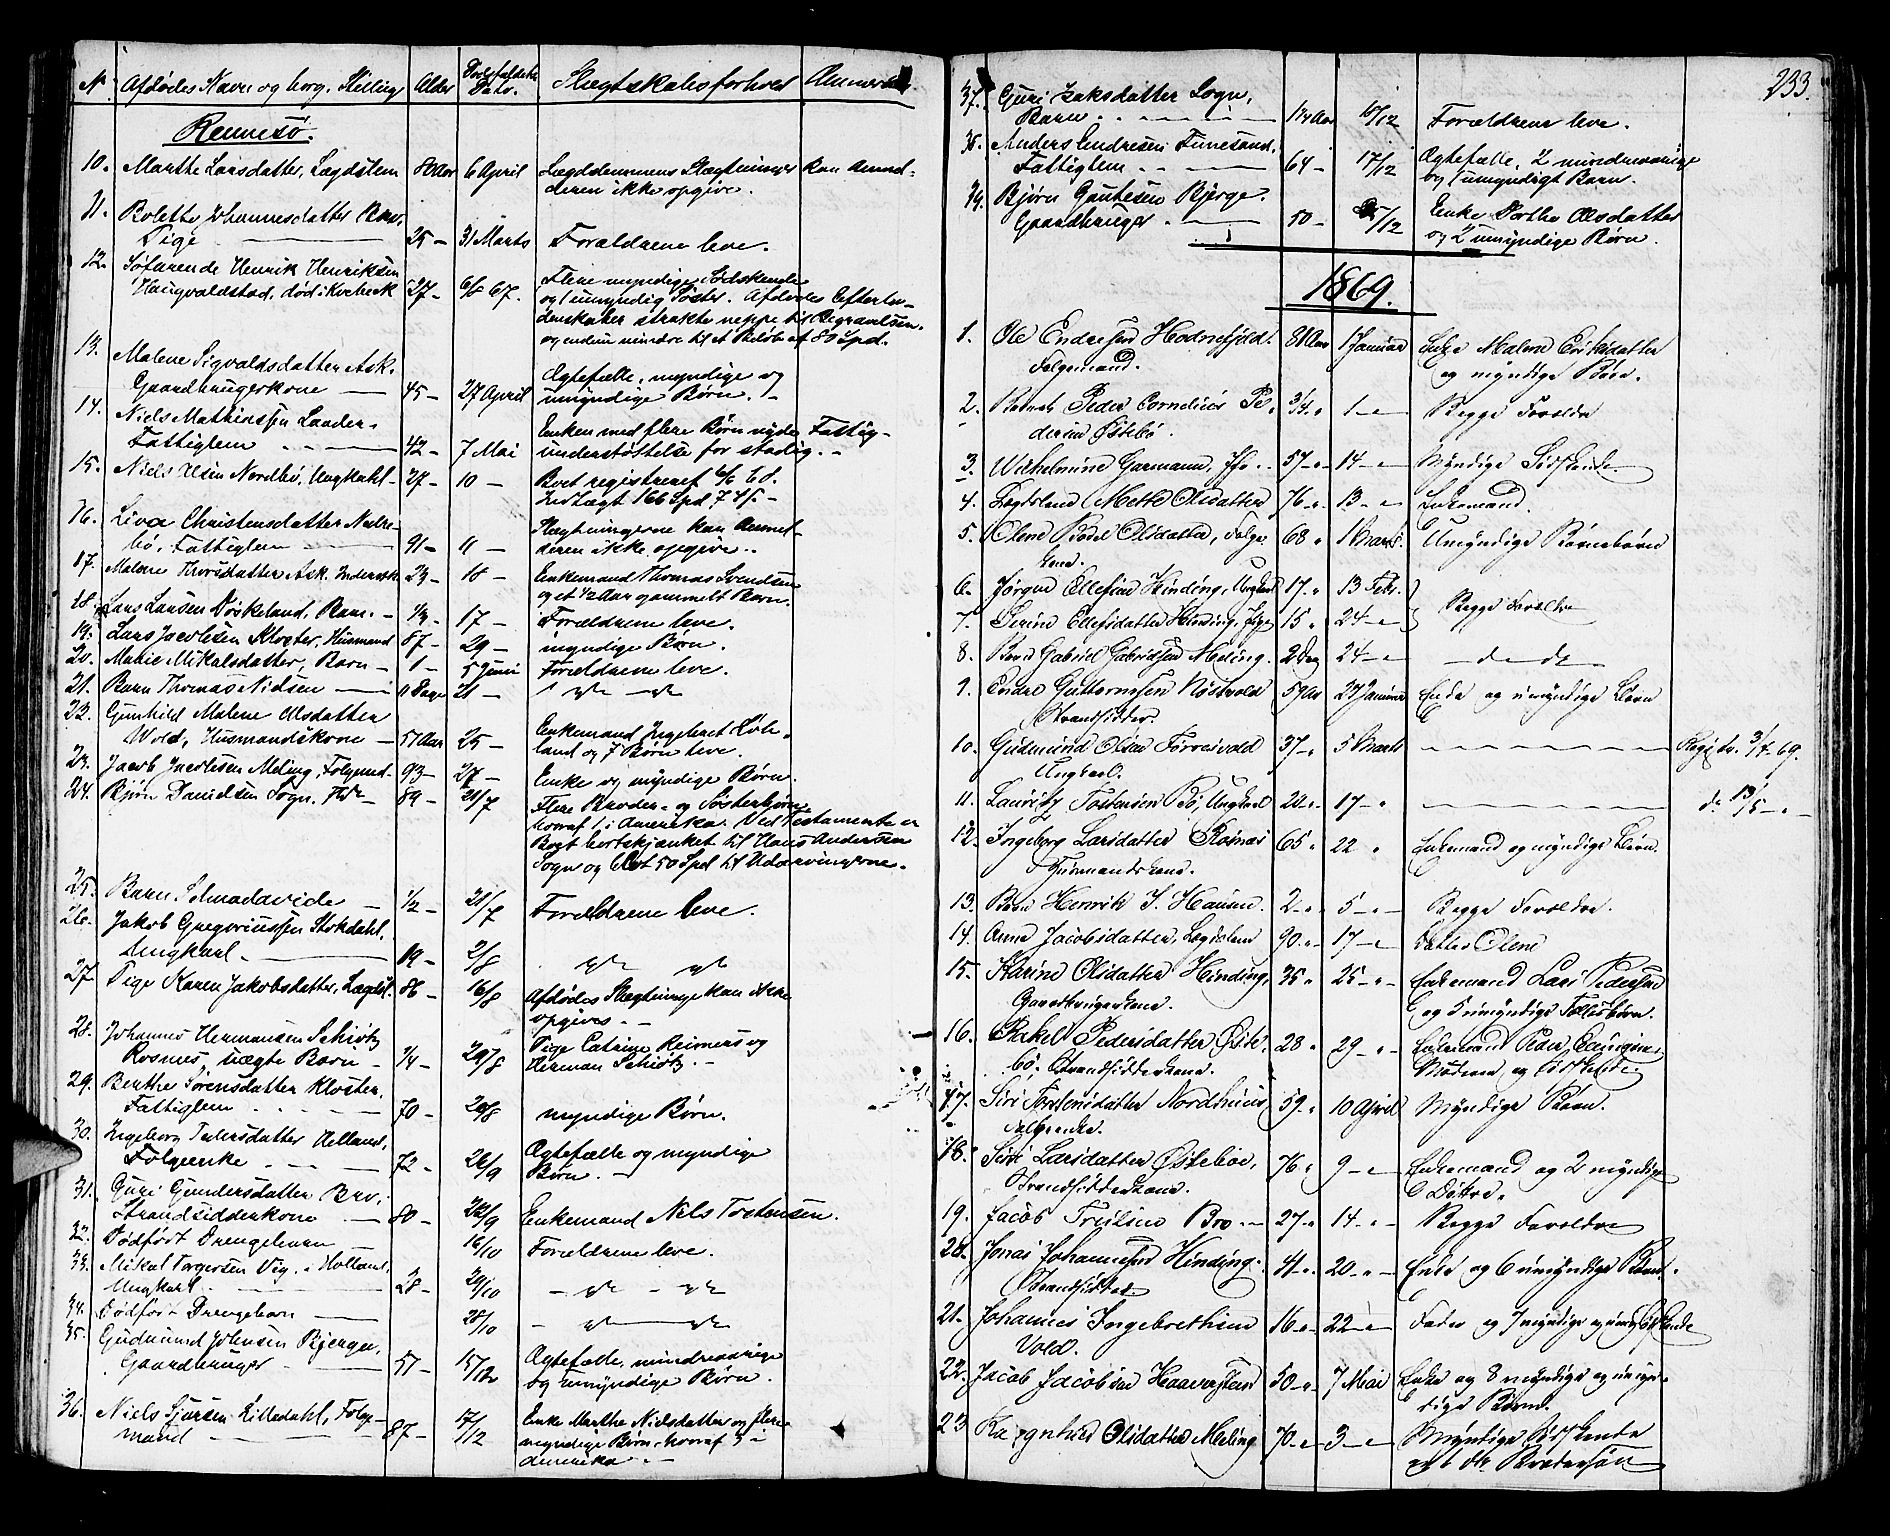 N. Afdødes Navn og borg. Stilling Alder Dødsfaldets Dato. Slegtskabsforhold Anmærk.
Rennesø.
10. Marthe Larsdatter, Lægdslem 80 Aar 6 April Lægdslemmens Slægtninger kan Anmel-
deren ikke opgive.
11. Bolette Johannesdatter Bru,
Pige 25 – 31 Marts Forældrene leve.
12. Søfarende Henrik Henriksen
Haugvaldstad, død i Kvebeck 27 – 6/8 67. Flere myndige Sødskende
og 1 umyndig Søster. Afdødes Efterla-
denskaber strakte neppe til Begravelsen,
og endnu mindre til et Beløb af 80 Spd.
13. Malene Sigvaldsdatter Ask.
Gaardbrugerkone 45 – 27 April Ægtefælle, myndige og
umyndige Børn.
14. Niels Mathiassen
Fattiglem 42 – 7 Mai Enken med flere Børn nyde Fattig-
understøttelse for stadig.
15. Niels Olsen Nordbø, Ungkahl 27 – 10 – Boet registreret 4/6 68.
Indtægt 166 Spd
16. Liva Christensdatter
bø, Fattiglem 91 – 11 – Slægtningerne kan Anmel-
deren ikke opgive.
17. Malene Thorsdatter Ask. 23 – 18 – Enkemand Thomas Svendsen
og et 1/2 Aar gammelt Barn.
18. Lars Larsen Døskeland, Barn 1/3 – 17 – Forældrene leve.
19. Lars Jacobsen Kloster, Husmand 87 – 29 – myndige Børn.
20. Marie Mikalsdatter, Barn 1 – 5 Juni Forældrene leve.
21. Barn Thomas Nielsen Dage 21 –
22. Gunhild Malene Olsdatter
Wold, Husmandskone 57 Aar 25 – Enkemand Ingebret
land og 7 Børn leve.
23. Jacob Jacobsen Meling, Folgemd 93 – 27 – Enke og myndige Børn.
24. Bjørn Danielsen Sogn. 89 – 21/7 Flere Broder- og Søsterbørn
hvoraf 1 i Amerika. Ved Testamente er
Boet bortskjænket til Hans Andersen
Sogn og 50 Spd til Udarvingerne.
25. Barn 1/2 – 28/7 Forældrene leve.
26. Jakob Gregoriussen Stokdahl,
Ungkarl 19 – 2/8
27. Pige Karen Jakobsdatter, 86 – 16/8 Afdødes Slegtninge kan ikke
opgives.
28. Johannes Hermansen Schiøtz
Rosnes, uægte Barn 1/4 – 27/8 Pige Catrine Reimers og
Herman Schiøtz
29. Berthe Sørensdatter Kloster,
Fattiglem 70 – 28/8 myndige Børn.
30. Ingeborg Pedersdatter Helland,
Folgeenke 72 – 26/9 Ægtefælle og myndige
Børn.
31. Guri Gundersdatter Bru,
Strandsidderkone 80 – 22/9 Enkemand Niels Torstensen.
32. Dødfødt Drengebarn 16/10 Forældrene leve.
33. Mikal Torgersen Vig. i Holland,
Ungkarl 28 – 29/10
34. Dødfødt Drengebarn 28/10
35. Gudmund Johnsen Bjerge,
Gaardbruger 57 – 15/12 Ægtefælle, mindreaarige
og umyndige Børn.
36. Niels Sjursen Lilledahl, Folge-
mand 87 – 17/12 Enke Marthe Nielsdatter og flere
myndige Børn, hvoraf 3 i
Amerika.
233.
37. Guri Isaksdatter Sogn,
Barn 1 1/4 Aar 10/12 Forældrene leve.
38. Anders Andresen
Fattiglem 64 – 17/12 Ægtefælle, 2 mindreaarige
og 1 umyndigt Barn.
39. Bjørn Gautesen Bjerge.
Gaardbruger 50 – 27/12 Enke Dorthe Olsdatter
og 2 umyndige Børn.
1869.
1. Ole Endresen Hodnefjeld 81 Aar 1 Januar Enke Malene Eriksdatter
Folgemand. og myndige Børn.
2. Barnet Peder Cornelius Pe- 3/4 " 1 – " Begge Foreldre
dersen Østebø.
3. Wilhelmine Garmann, 57 – " 14 – " Myndige Sødskende
4. Lægdslem Mette Olsdatter 76 – " 13 – " Enkemand.
5. Olene Bodel Olsdatter, Folge- 68 " 1 Marts Umyndige Børnebørn
kone.
6. Jørgen Ellefsen Hinding, Ungkarl 17 " 13 Febr. Begge Foreldre
7. Serine Ellefsdatter Hinding, Pige 15 " 24 – "
8. Barn Gabriel Gabrielsen Meling. 2 Dag 24 – " – do – do –
9. Endre Guttormsen Nøstvold 59 Aar 27 Januar Enke og umyndige Børn
Strandsidder.
10. Gudmund Olsen Førresvold 37 " 5 Marts Registr. 3/4 69.
Ungkarl.
11. Lauritz Tostensen Bø, Ungkarl 22 " 17 – " do 13/5 – "
12. Ingeborg Larsdatter Rosnæs 65 " 22 " Enkemand og myndige Børn.
13. Barn Henrik S. Hansen. 2 – " 5 – " Begge Foreldre.
14. Anne Jacobsdatter, Lægdslem 90 " 17 – " Datter Olene
15. Karine Olsdatter Hinding, 35 " 25 – " Enkemand Lars Pedersen
Gaardbrugerkone. og 5 umyndige Fællesbørn.
16. Rakel Pedersdatter Øste- 28 " 29 – " Enkemand Peder
bø, Strandsidderkone. Moderen og Sødskende.
17. Siri Torstensdatter Nordhuus 59 – " 10 April Myndige Børn.
Folgeenke.
18. Siri Larsdatter Østebøe, 76 " 9 – " Enkemand og 2 myndige
Strandsidderkone. Døttre.
19. Jacob Bro 27 – " 14 – " Begge Foreldre
20. Jonas Johannesen Hinding. 41 – " 20 – " Enke og 6 umyndige Børn.
Strandsidder
21. Johannes Ingebrethsen 16 – " 22 – " Fader og myndige og umyn Sødskende
Vold.
22. Jacob Jacobsen Haaversteen 50 – " 7 Mai Enke og 8 myndige og umyn-
dige Børn.
23 Ragnhild Olsdatter Meling 70 – " 3 – " Myndige Sødskende
og 1 Brodersøn